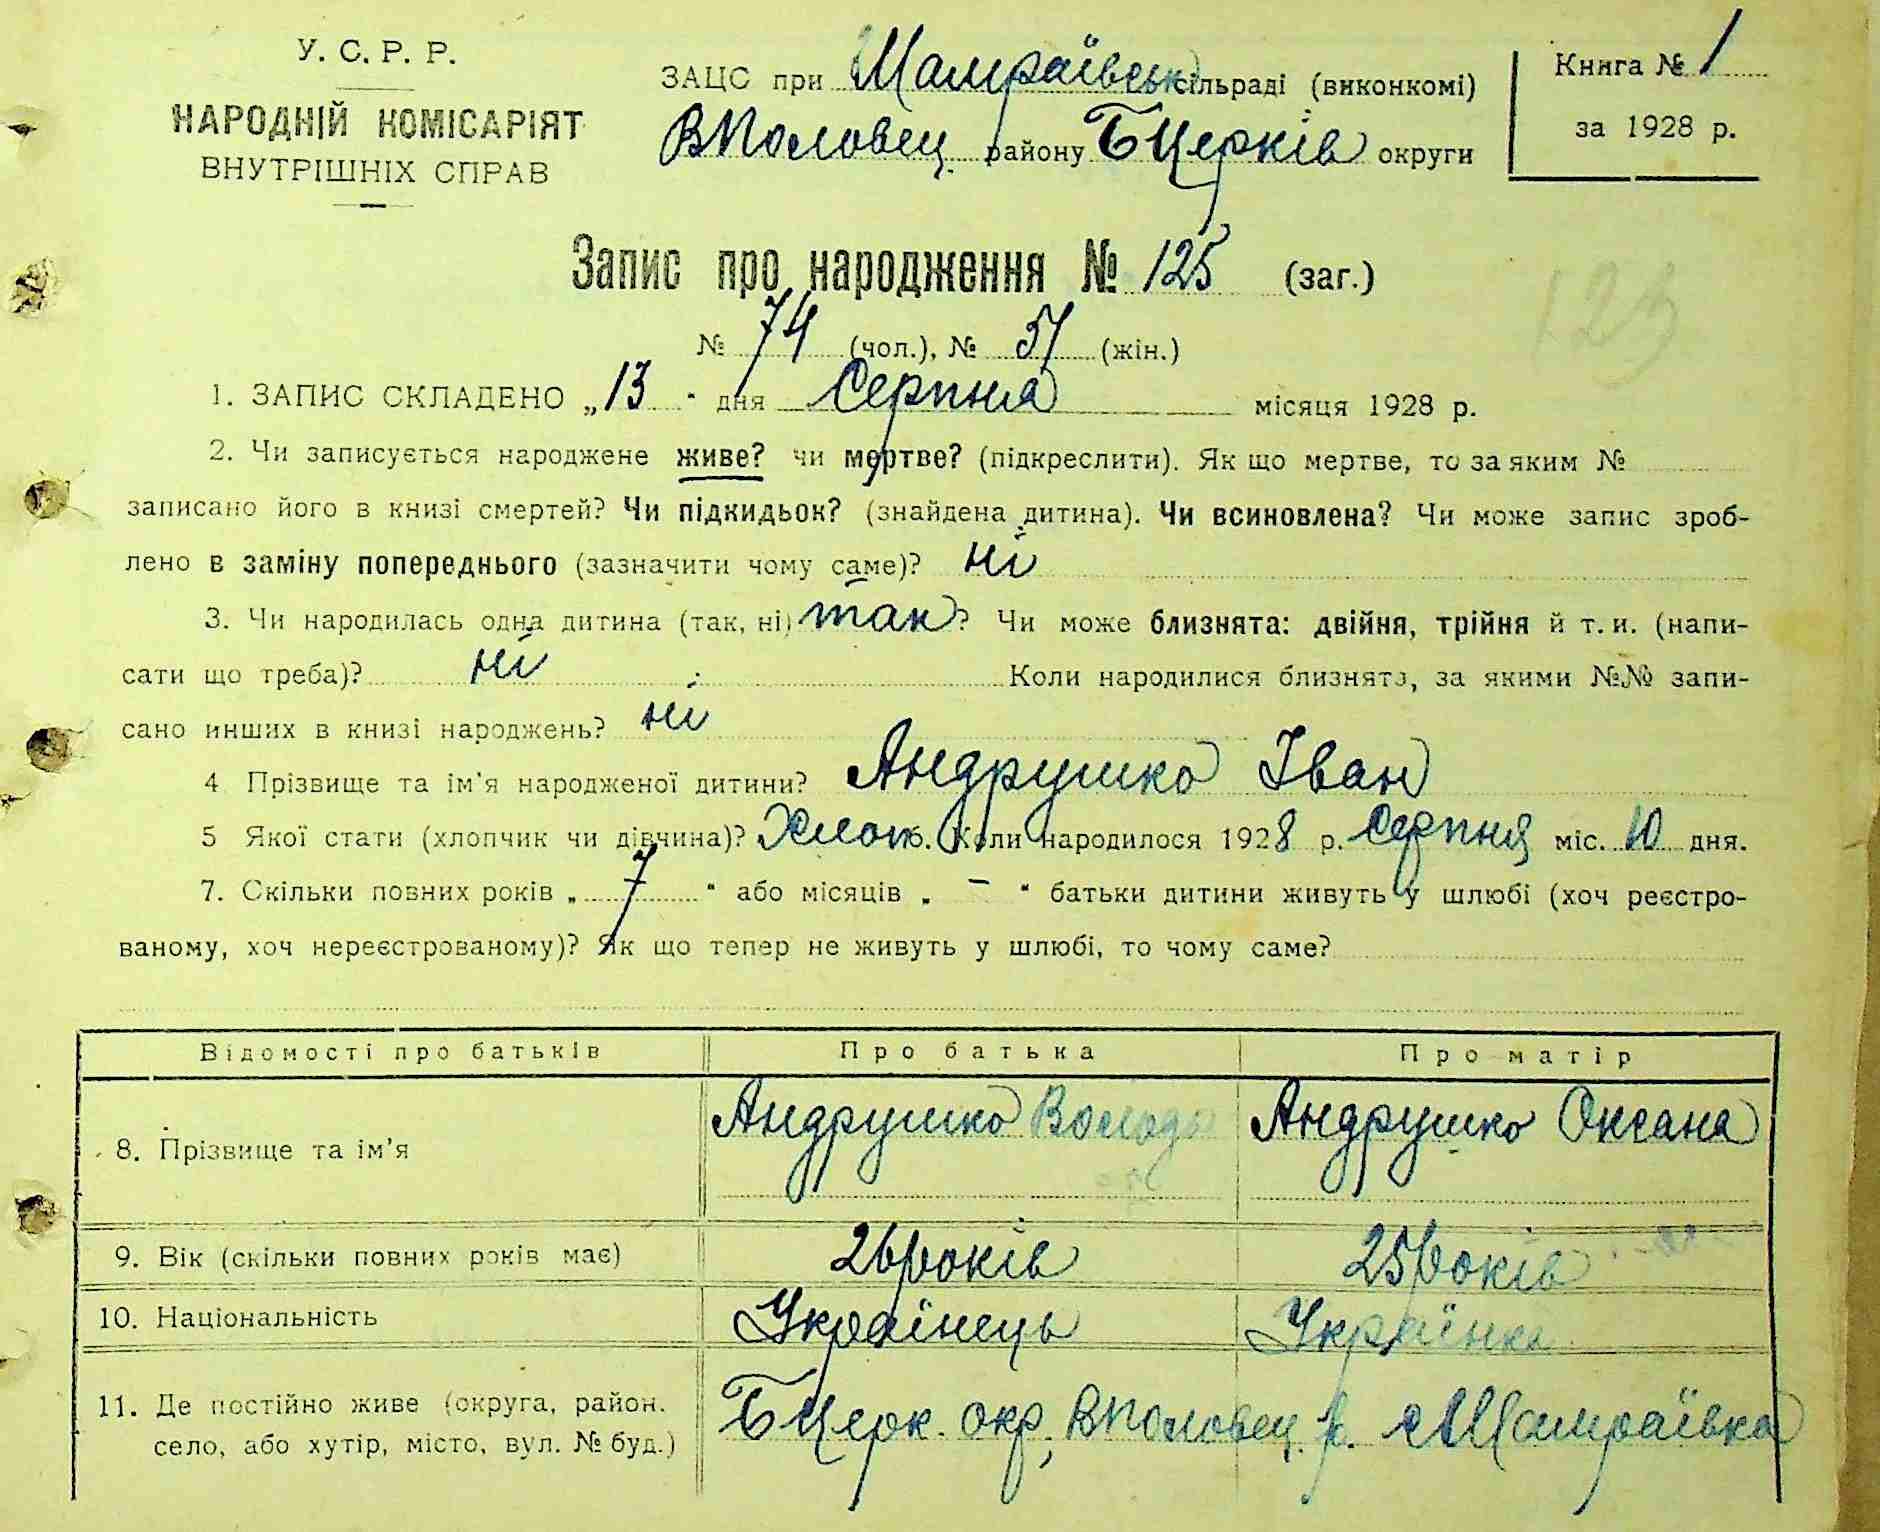 У. С. Р. Р.
НАРОДНІЙ КОМІСАРІЯТ
ВНУТРІШНІХ СПРАВ
ЗАЦС при Шамраївськ сільраді (виконкомі)
ВПоловец. району БЦерків округи
Книга № 1
за 1928 р.
Запис про народження № 125 (заг.)
№ 74 (чол.), № 51 (жін.)
123
1. ЗАПИС СКЛАДЕНО „13" дня Серпня місяця 1928 р.
2. Чи записується народжене живе? чи мертве? (підкреслити). Як що мертве, то за яким №
записано його в книзі смертей? Чи підкидьок? (знайдена дитина). Чи всиновлена? Чи може запис зроб-
лено в заміну попереднього (зазначити чому саме)? ні
3. Чи народилась одна дитина (так, ні) так? Чи може близнята: двійня, трійня й т. и. (напи-
сати що треба)? ні Коли народилися близнята, за якими №№ запи-
сано инших в книзі народжень? ні
4 Прізвище та ім'я народженої дитини? Андрушко Іван
5 Якої стати (хлопчик чи дівчина)? Хлоп. 6. Коли народилося 1928 р. Серпня міс. 10 дня.
7. Скільки повних років „ 7 " або місяців „ – " батьки дитини живуть у шлюбі (хоч реєстро-
ваному, хоч нереєстрованому)? Як що тепер не живуть у шлюбі, то чому саме?
Відомості про батьків Про батька Про матір
8. Прізвище та ім'я Андрушко Володи Андрушко Оксана
9. Вік (скільки повних років має) 26 років 25 років
10. Національність Українець Українка
11. Де постійно живе (округа, район.
село, або хутір, місто, вул. № буд.) БЦерк. окр, ВПоловец. р. с Шамраївка